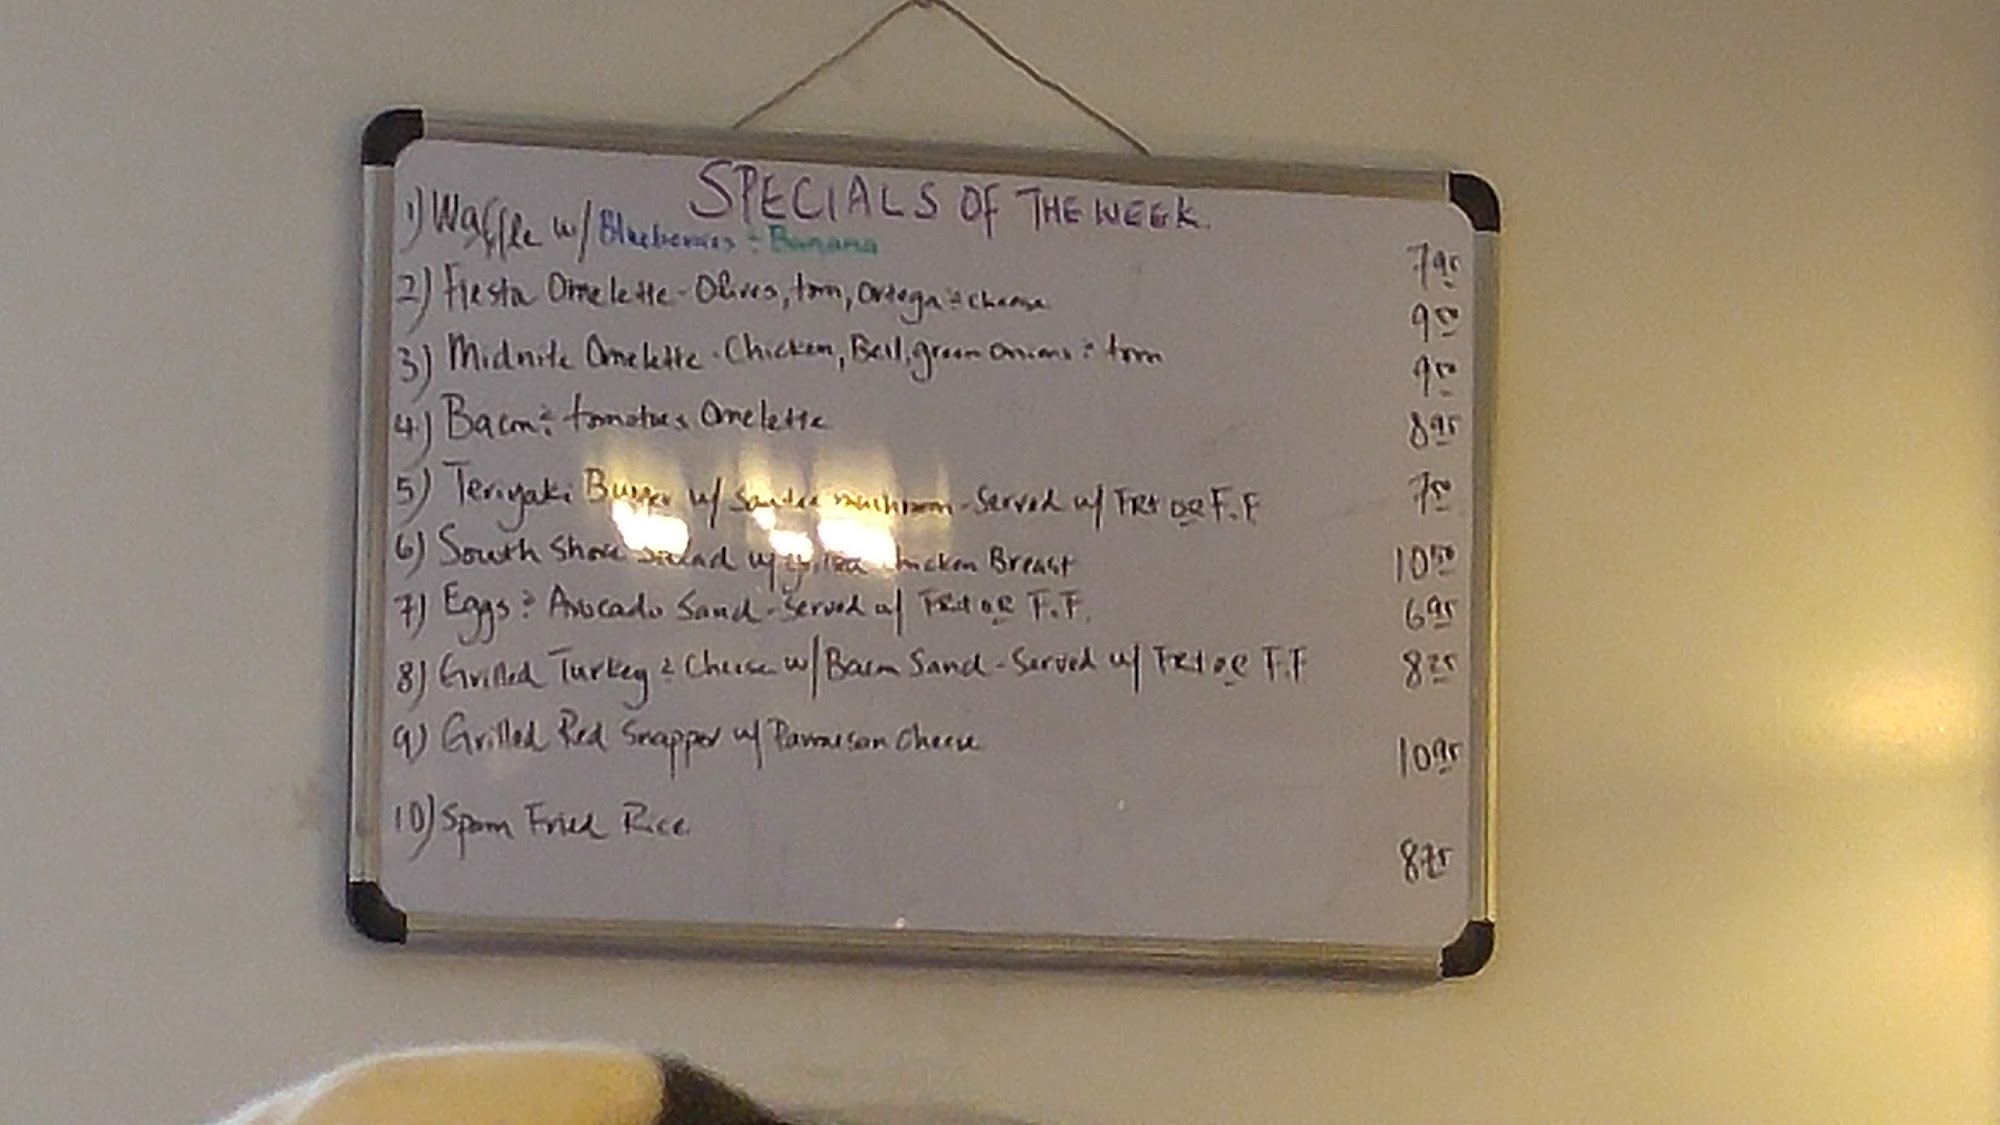 SPECIALS OF THE WEEK.
1) Waffle w/ Blueberries & Banana 7 95
2) Fiesta Omelette - Olives, tom, Ortega & cheese 9 50
3) Midnite Omelette - Chicken, Bell, green onions & tom 9 50
4) Bacon & tomatoes Omelette 8 95
5) Teriyaki Burger w/ mushroom - Served w/ FRT OR F.F 7 50
6) South Shore Salad w/ Chicken Breast 10 50
7) Eggs & Avocado Sand - Served w/ FRT OR F.F. 6 95
8) Grilled Turkey & Cheese w/ Bacon Sand - Served w/ FRT OR F.F
9) Grilled Red Snapper w/ Parmesan Cheese 10 95
10) Spam Fried Rice